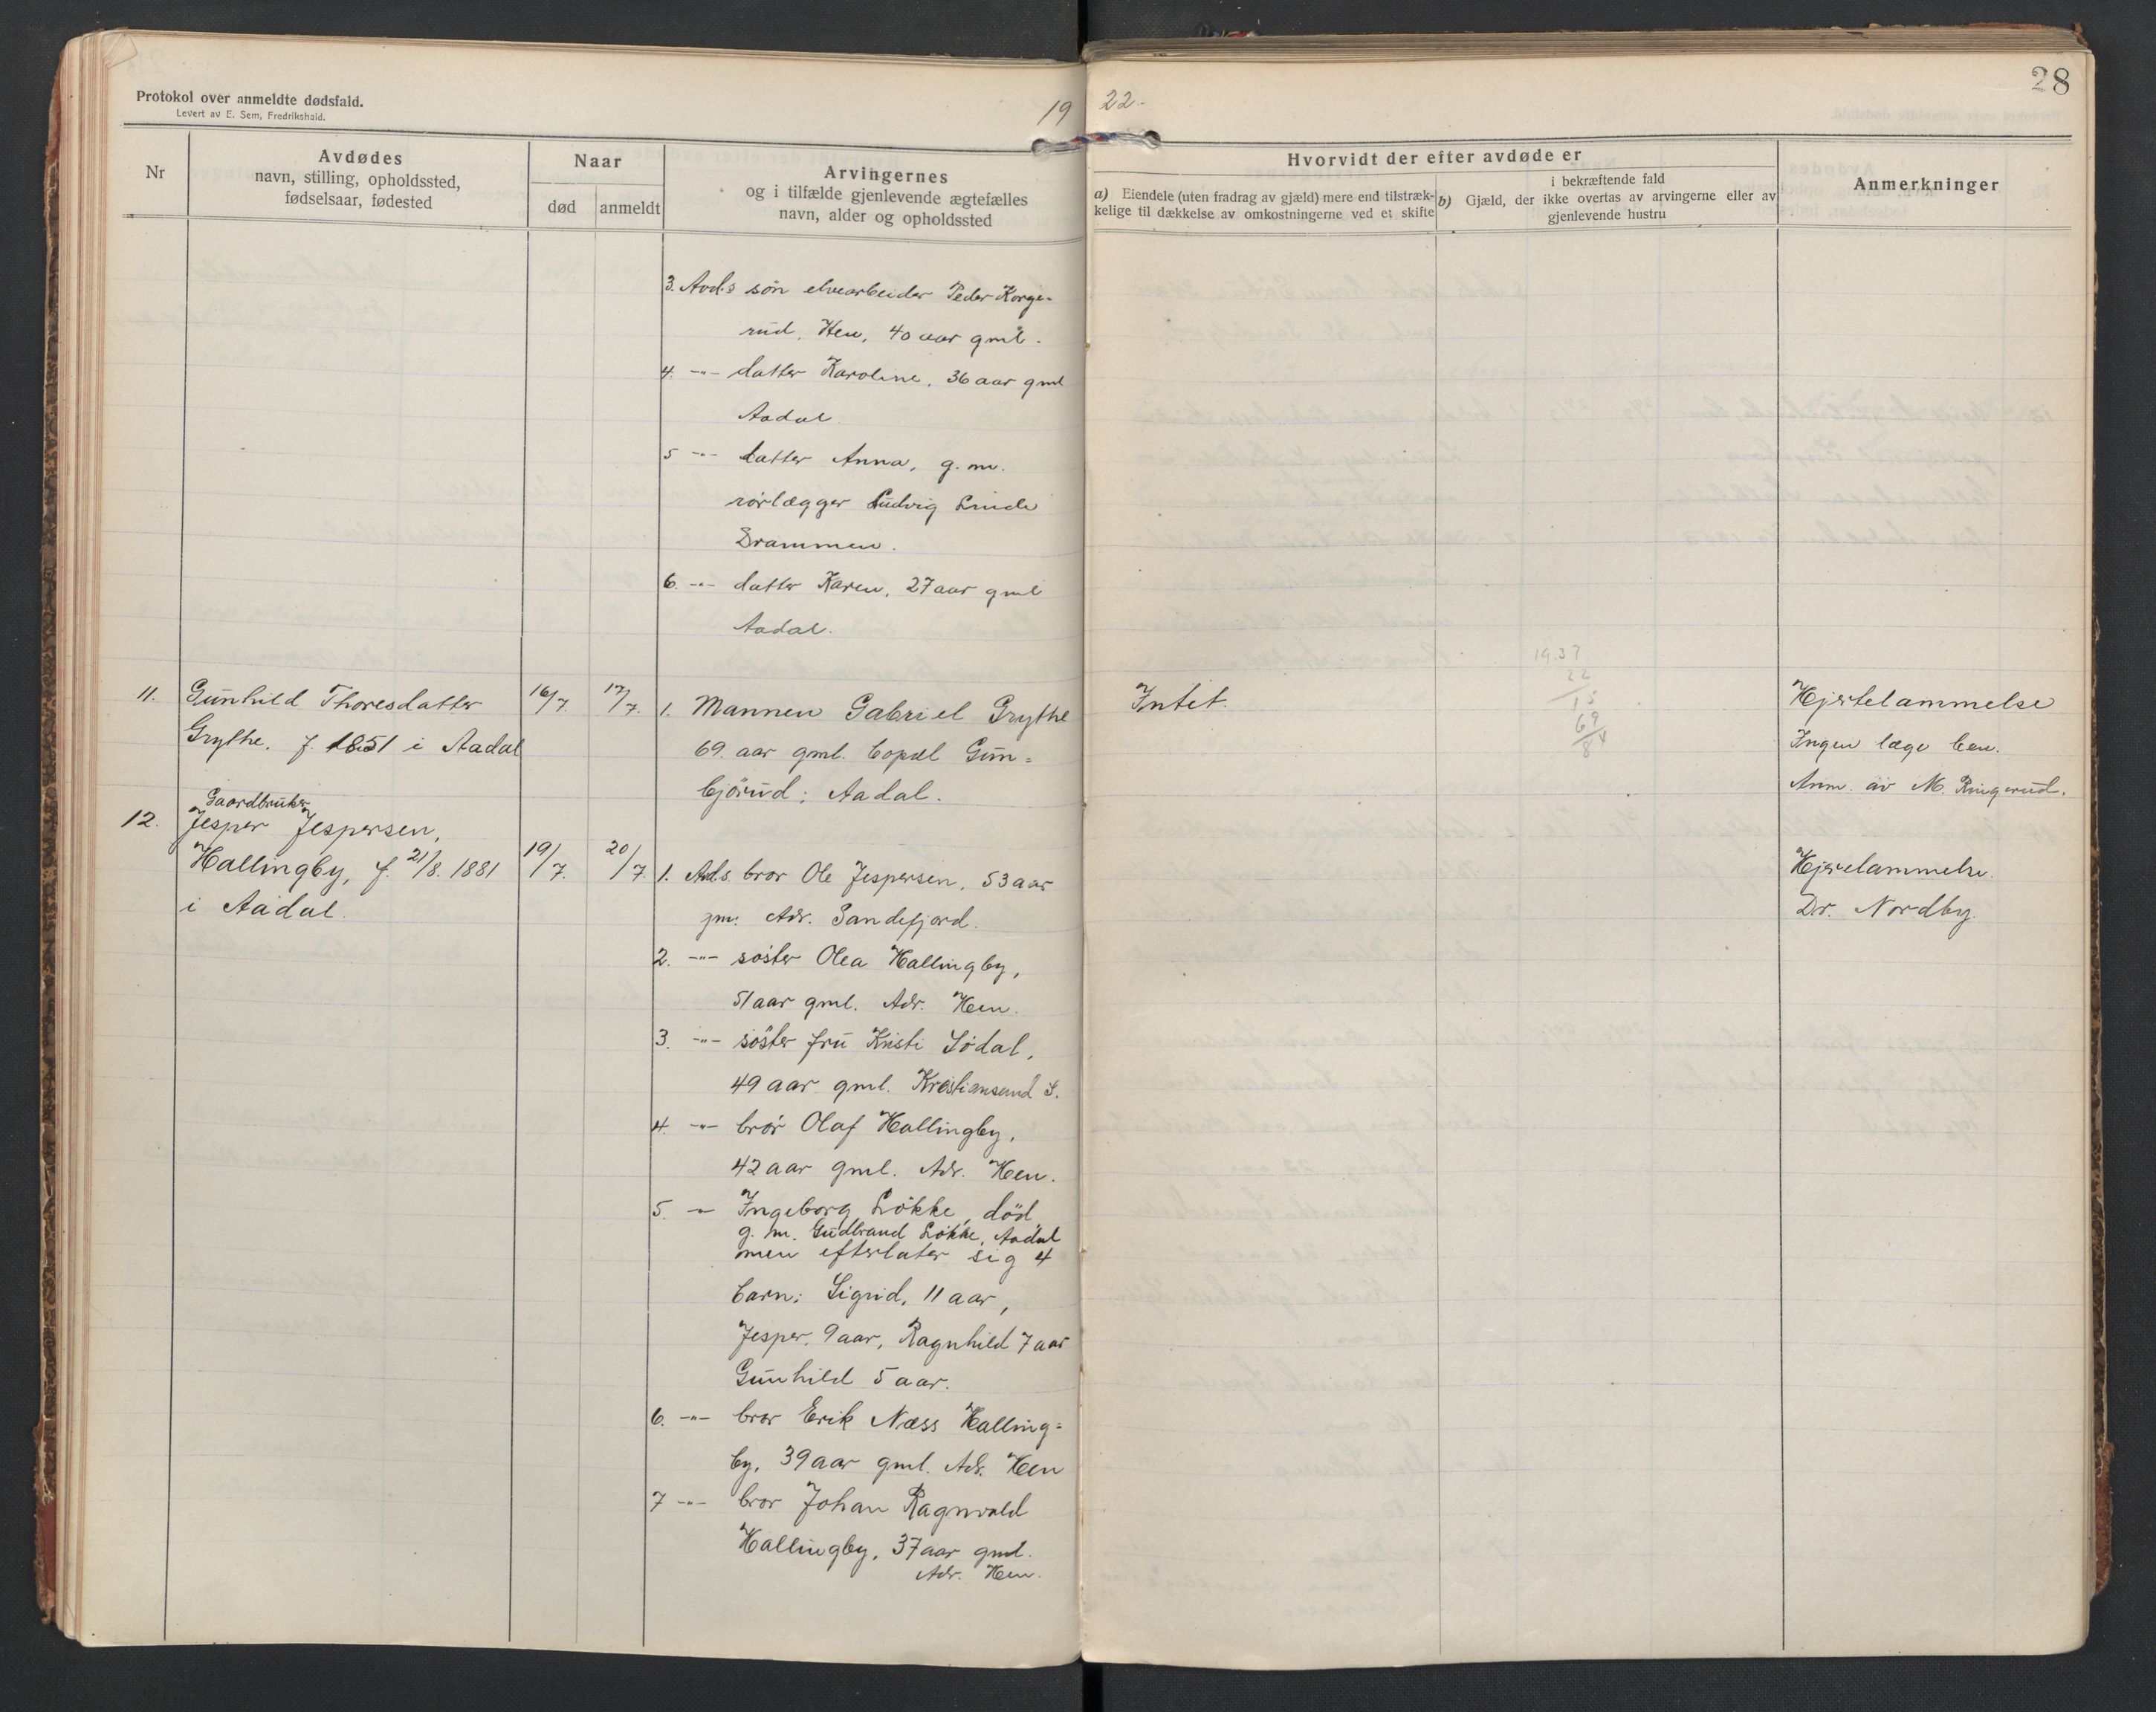 Protokol over anmeldte dødsfald.
Levert av E. Sem, Fredrikshald.
19 22.
28
Nr
Avdødes
navn, stilling, opholdssted,
fødselsaar, fødested
Naar
død
anmeldt
Arvingernes
og i tilfælde gjenlevende ægtefælles
navn, alder og opholdssted
Hvorvidt der efter avdøde er
a) Eiendele (uten fradrag av gjæld) mere end tilstræk-
kelige til dækkelse av omkostningerne ved et skifte
i bekræftende fald
b) Gjæld, der ikke overtas av arvingerne eller av
gjenlevende hustru
Anmerkninger
3. Avd.s søn elvearbeider Peder Korge-
rud, Hen, 40 aar gml.
4. -"- datter Karoline, 36 aar gml
Aadal.
5 -"- datter Anna, g. m.
rørlægger Ludvig Linde
Drammen.
6. -"- datter Karen, 27 aar gml
Aadal.
11. Gunhild Thoresdatter
Grythe. f. 1851 i Aadal
16/7. 17/7.
1. Mannen Gabriel Grythe
69. aar gml. bopæl Gun=
bjørud: Aadal.
Intet.
19.37
22
15
69
84
Hjertelammelse
Ingen læge ben.
Anm. av M. Ringerud.
12. Gaardbruker
Jesper Jespersen,
Hallingby, f. 21/8. 1881
i Aadal.
19/7. 20/7.
1. Avd.s. bror Ole Jespersen, 53 aar
gm. Adr. Sandefjord.
2. -"- søster Olea Hallingby,
51 aar gml. Adr. Hen.
3. -"- søster fru Kristi Sødal,
49 aar gml. Kristiansand S.
4. -"- bror Olaf Hallingby,
42 aar gml. Adr. Hen.
5. -"- Ingeborg Løkke, død
g. m. Gudbrand Løkke, Aadal
men efterlater sig 4
barn: Sigrid, 11 aar,
Jesper, 9 aar, Ragnhild 7 aar
Gunhild 5 aar.
6. -"- bror Erik Næss Halling=
by, 39 aar gml. Adr. Hen
7 -"- bror Johan Ragnvald
Hallingby, 37 aar gml.
Adr. Hen.
Hjertelammelse.
Dr. Nordby.